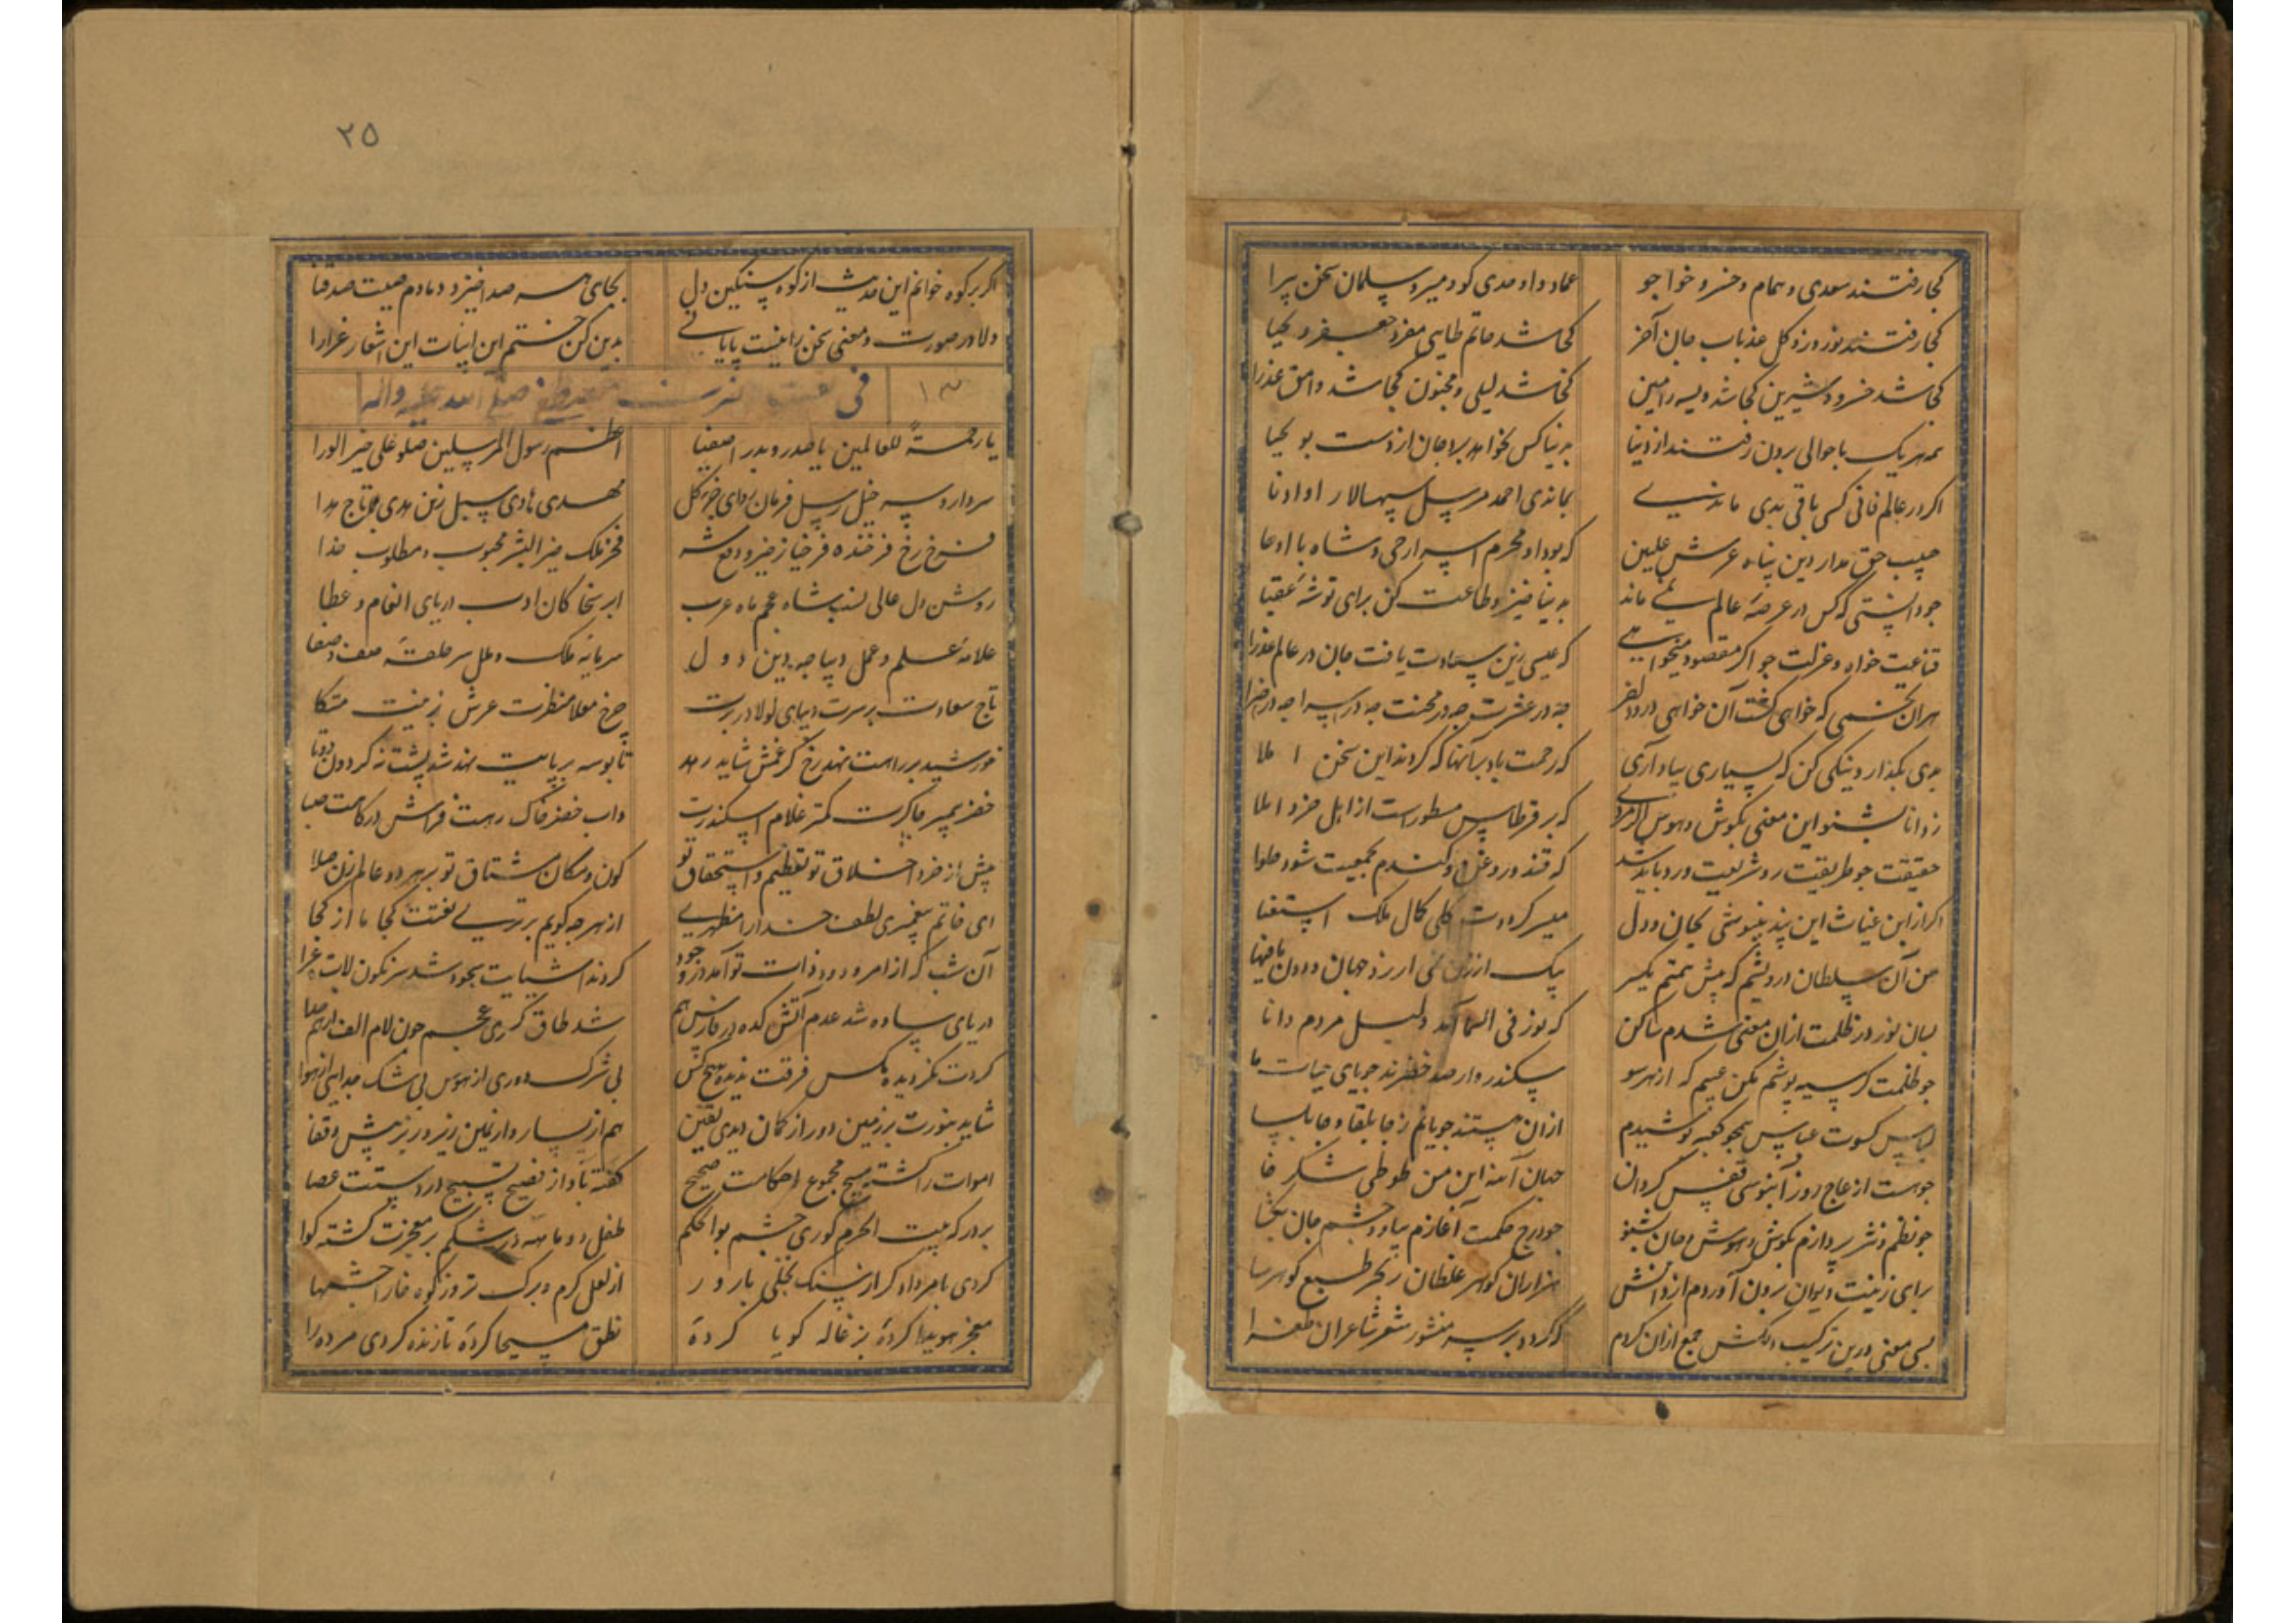 کجا رفتند سعدی و همام و خسرو خواجو
عماد و اوحدی کو و میر و سلمان سخن پیرا
کجا رفتند نوروز و کل عذباب جان آخر
کجا شد حاتم طایی جعفر و یحیا
کجا شد خسرو و شیرین کجا شد ویسه رامین
کجا شد لیلی و مجنون کجا شد وامق عذرا
همه یک با برون رفتند از دنیا
بدنیا کس نخواهد برد جان از دست
اکر در عالم فانی کسی باقی بدی
بماندی احمد مرسل سپهسالار او ادنا
حبیب حق مدار دین پناه عرش علیین
که بود او محرم اسرار وحی و شاه با ادعا
جو دانستی که کس در عرصهٔ عالم نمی ماند
بدنیا خیز و طاعت کن برای توشهٔ عقبا
قناعت خواه و عزلت جو اکر مقصود میخواهی
که عیسی زین سعادت یافت جان در عالم
هران تخمی که خواهی کشت آن خواهی درود
جه در عشرت جه در محنت جه در سرا جه در ضرا
بدی بکذار و نیکی کن که بسیاری بیاد آری
که رحمت باد بر آنها که کردند این سخن املا
ز دانا بشنو این معنی بکوش و هوس
که بر قرطاس مسطورست از اهل خرد املا
حقیقت جو طریقیت رو شریعت ورد باید شد
که قند و روغن و کندم بجمعیت شود حلوا
اکر از ابن غیاث این پند بنیوشی بجان و دل
میسر کرددت کلی کمال ملک استغنا
من آن سلطان درویشم که پیش همتم یکسر
بیک ارزن نمی ارزد جهان و دون
بسان نور در ظلمت ازان معنی شدم ساکن
که نور فی السما آمد دلیل مردم دانا
جو ظلمت کر سیه پوشم مکن عیبم که از هر سو
سکندر وار صد خضرند جویای حیات ما
لباس کسوت عباس همجو کعبه پوشیدم
ازان هستند جویانم ز جابلقا و جابلسا
جوهست از عاج روز آبنوسی قفس کردان
جهان آینه این من طوطی شکر خا
جو نظم و نثر پردازم بکوش و هوش و جان بشنو
جو درج حکمت آغازم بیا و چشم جان بکشا
برای زینت دیوان برون آوردم از دانش
هزاران کوهر غلطان ز بحر طبع کوهرسا
بسی معنی درین ترکیب دلکش جمع ازان کردم
که کردد بر سر منشور شعر شاعران طغرا
۲۵
اکر بر کوه خوانم این حدیث از کوه سنکین دل
بجای سر صدا خیزد دمادم صیت صدقنا
دلا در صورت و معنی سخن را نیست پایانی
بدین کن ختم این ابیات این اشعار غرارا
۱۳
فی صلی الله علیه واله
یا رحمة للعالمین یا صدر و بدر اصفیا
اعظم رسول المرسلین صلو علی خیر الورا
سردار و سر خیل رسل فرمان روای جزو کل
مهدی هادی سبل زین هدی تاج هدا
فرخ رخ فرخنده فر
فخر ملک خیر البشر محبوب و مطلوب خدا
روشن دل عالی نسب شاه عجم ماه عرب
ابر سخا کان ادب دریای انعام و عطا
علامهٔ علم و عمل دیباجه دین دول
سرمایهٔ ملک و ملل سر حلقهٔ صف صفا
تاج سعادت بر سرت دیبای لولا در برت
جرخ معلا منظرت عرش زمینت متکا
خورشید بر راهت نهد رخ کر غمش شاید رهد
تا بوسه بر پایت نهد شد پشت نه کردون دوتا
خضر پیمبر جاکرت کمتر غلام اسکندرت
واب خضر خاک رهت فراش درکاهت صبا
پیش از خرد اخلاق تو تعظیم و استحقاق تو
کون و مکان مشتاق تو بر هر دو عالم زن صلا
ای خاتم پیغمبری لطف خدا را مظهری
از هر جه کویم برتری نعتت کجا ما از کجا
آن شب که از امر ودود ذات تو آمد در وجود
کردند اشیایت سجود شد سرنکون لات
دریای ساوه شد عدم آتشکده در فارس هم
شد طاق کسری عجم جون لام الف از هم جدا
کردت نکردیده مکس فرقت ندیده هیچ کس
بی شرک دوری از هوس بی شک جدایی از هوا
شاید بنورت بر زمین دور از کمان دیدی یقین
هم از یسار و از یمین زیر و زبر پیش و قفا
اموات را کشته مسیح مجموع احکامت صحیح
کفته باواز فصیح تسبیح در دستت حصا
بر درکه بیت الحرم کوری چشم بوالحکم
طفل دو ماهه در شکم بر معجزت کشته کوا
کردی بامر دادکر از سنک نخلی بارور
از لعل کرم و برک تر وز کوه خارا چشمها
معجز هویدا کردهٔ بزغاله کویا کردهٔ
نطق مسیحا کردهٔ تا زنده کردی مرده را